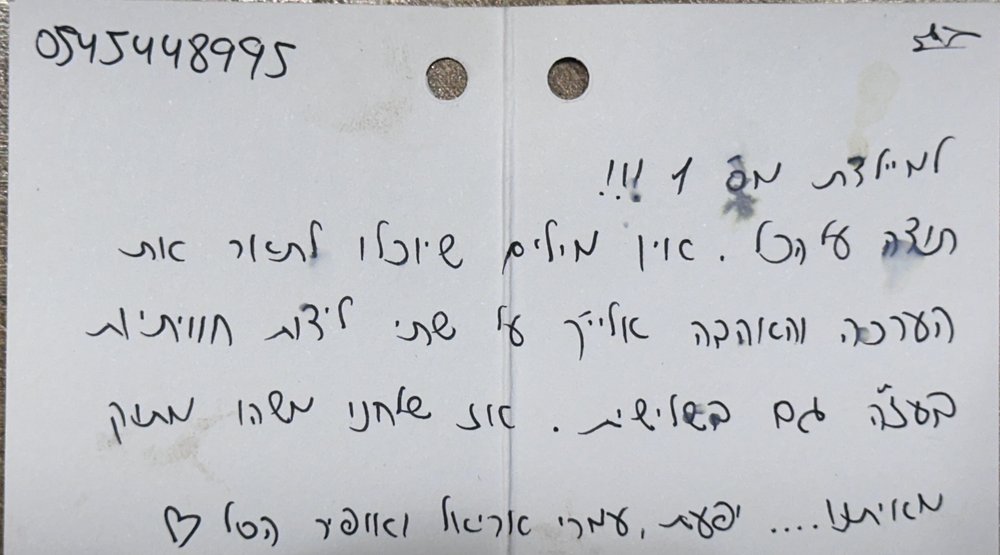 0545448995
למיילדת מס 1 !!!
תודה על הכל. אין מילים שיוכלו לתאר את
הערכה והאהבה אלייך על שתי לידות חוויתיות
בעז"ה גם בשלישית. אז שלחנו משהו מתוק
מאיתנו.... יפעת, עמרי אריאל ואופיר הסל ♡